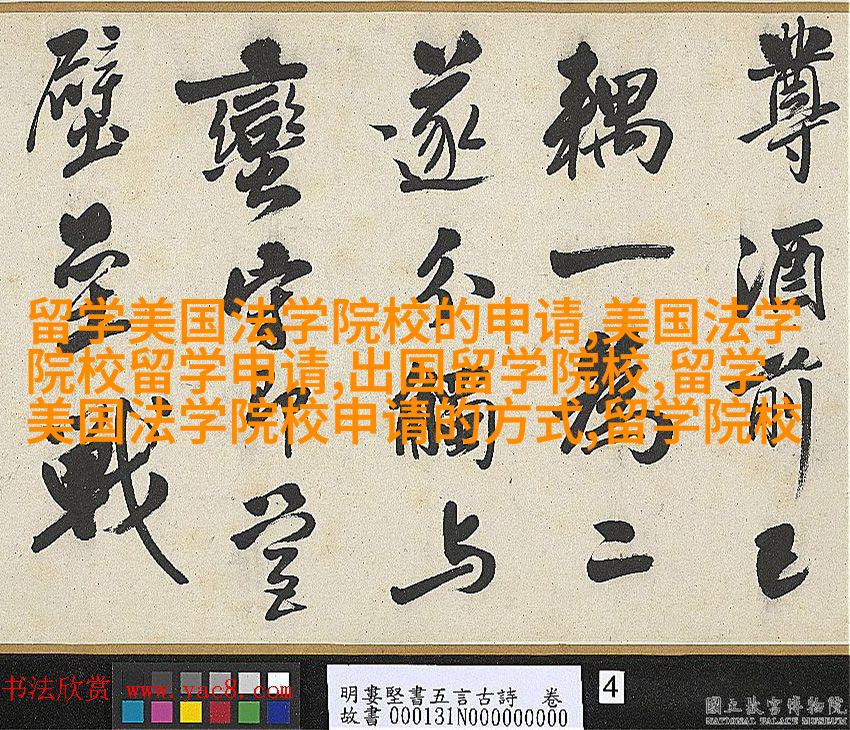 尊酒前已
耦一為二
遂分觸与
蠻守即營
壁壘戰
留学美国法学院校的申请,美国法学
院校留学申请,出国留学院校,留学
美国法学院校申请的方式,留学院校
书法欣赏 www.yac8.com
明婁堅書五言古詩 卷
故書 000131N000000000
4
國立故宮博物院
NATIONAL PALACE MUSEUM